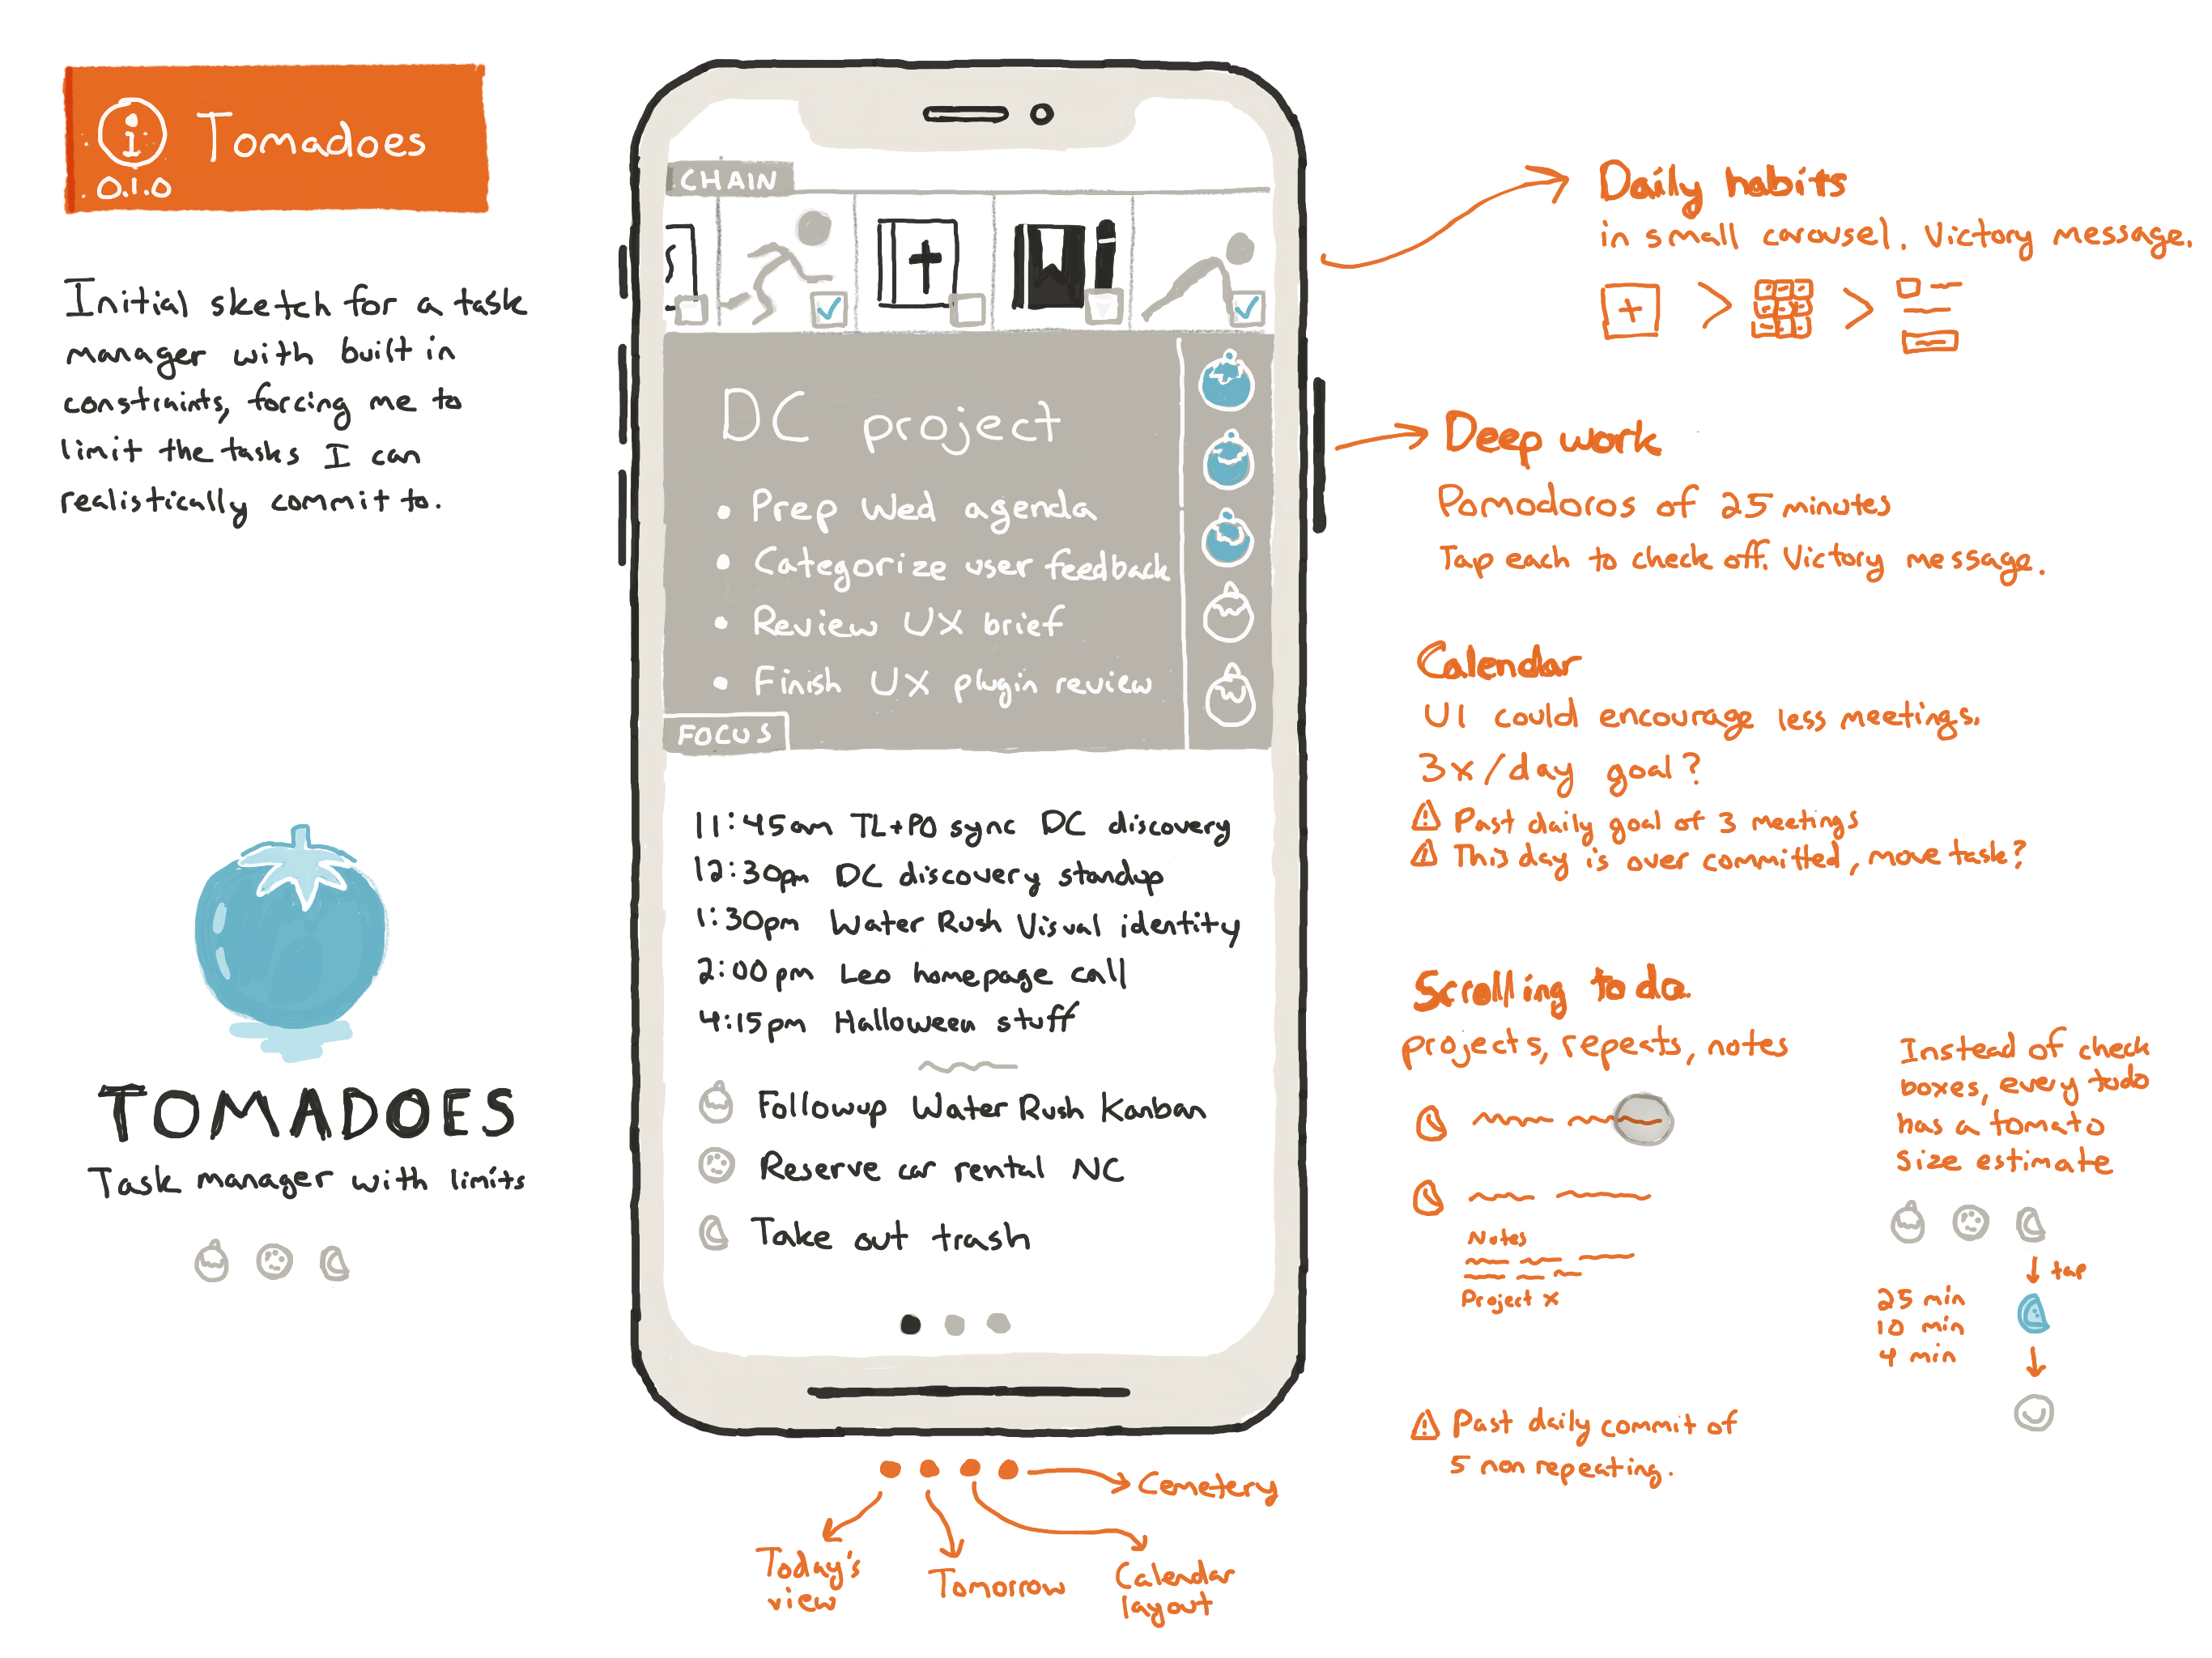 i
0.1.0
Tomadoes
Initial sketch for a task
manager with built in
constraints, forcing me to
limit the tasks I can
realistically commit to.
TOMADOES
Task manager with limits
CHAIN
DC project
• Prep Wed agenda
• Categorize user feedback
• Review UX brief
• Finish UX plugin review
FOCUS
11:45am TL+PO sync DC discovery
12:30pm DC discovery standup
1:30pm Water Rush Visual identity
2:00pm Leo homepage call
4:15pm Halloween stuff
Followup Water Rush Kanban
Reserve car rental NC
Take out trash
Today's
view
Tomorrow
Calendar
layout
Cemetery
Daily habits
in small carousel. Victory message.
Deep work
Pomodoros of 25 minutes
Tap each to check off. Victory message.
Calendar
UI could encourage less meetings.
3x/day goal?
Past daily goal of 3 meetings
This day is over committed, move task?
Scrolling to do.
projects, repeats, notes
Notes
Project x
Instead of check
boxes, every todo
has a tomato
size estimate
tap
25 min
10 min
4 min
Past daily commit of
5 non repeating.